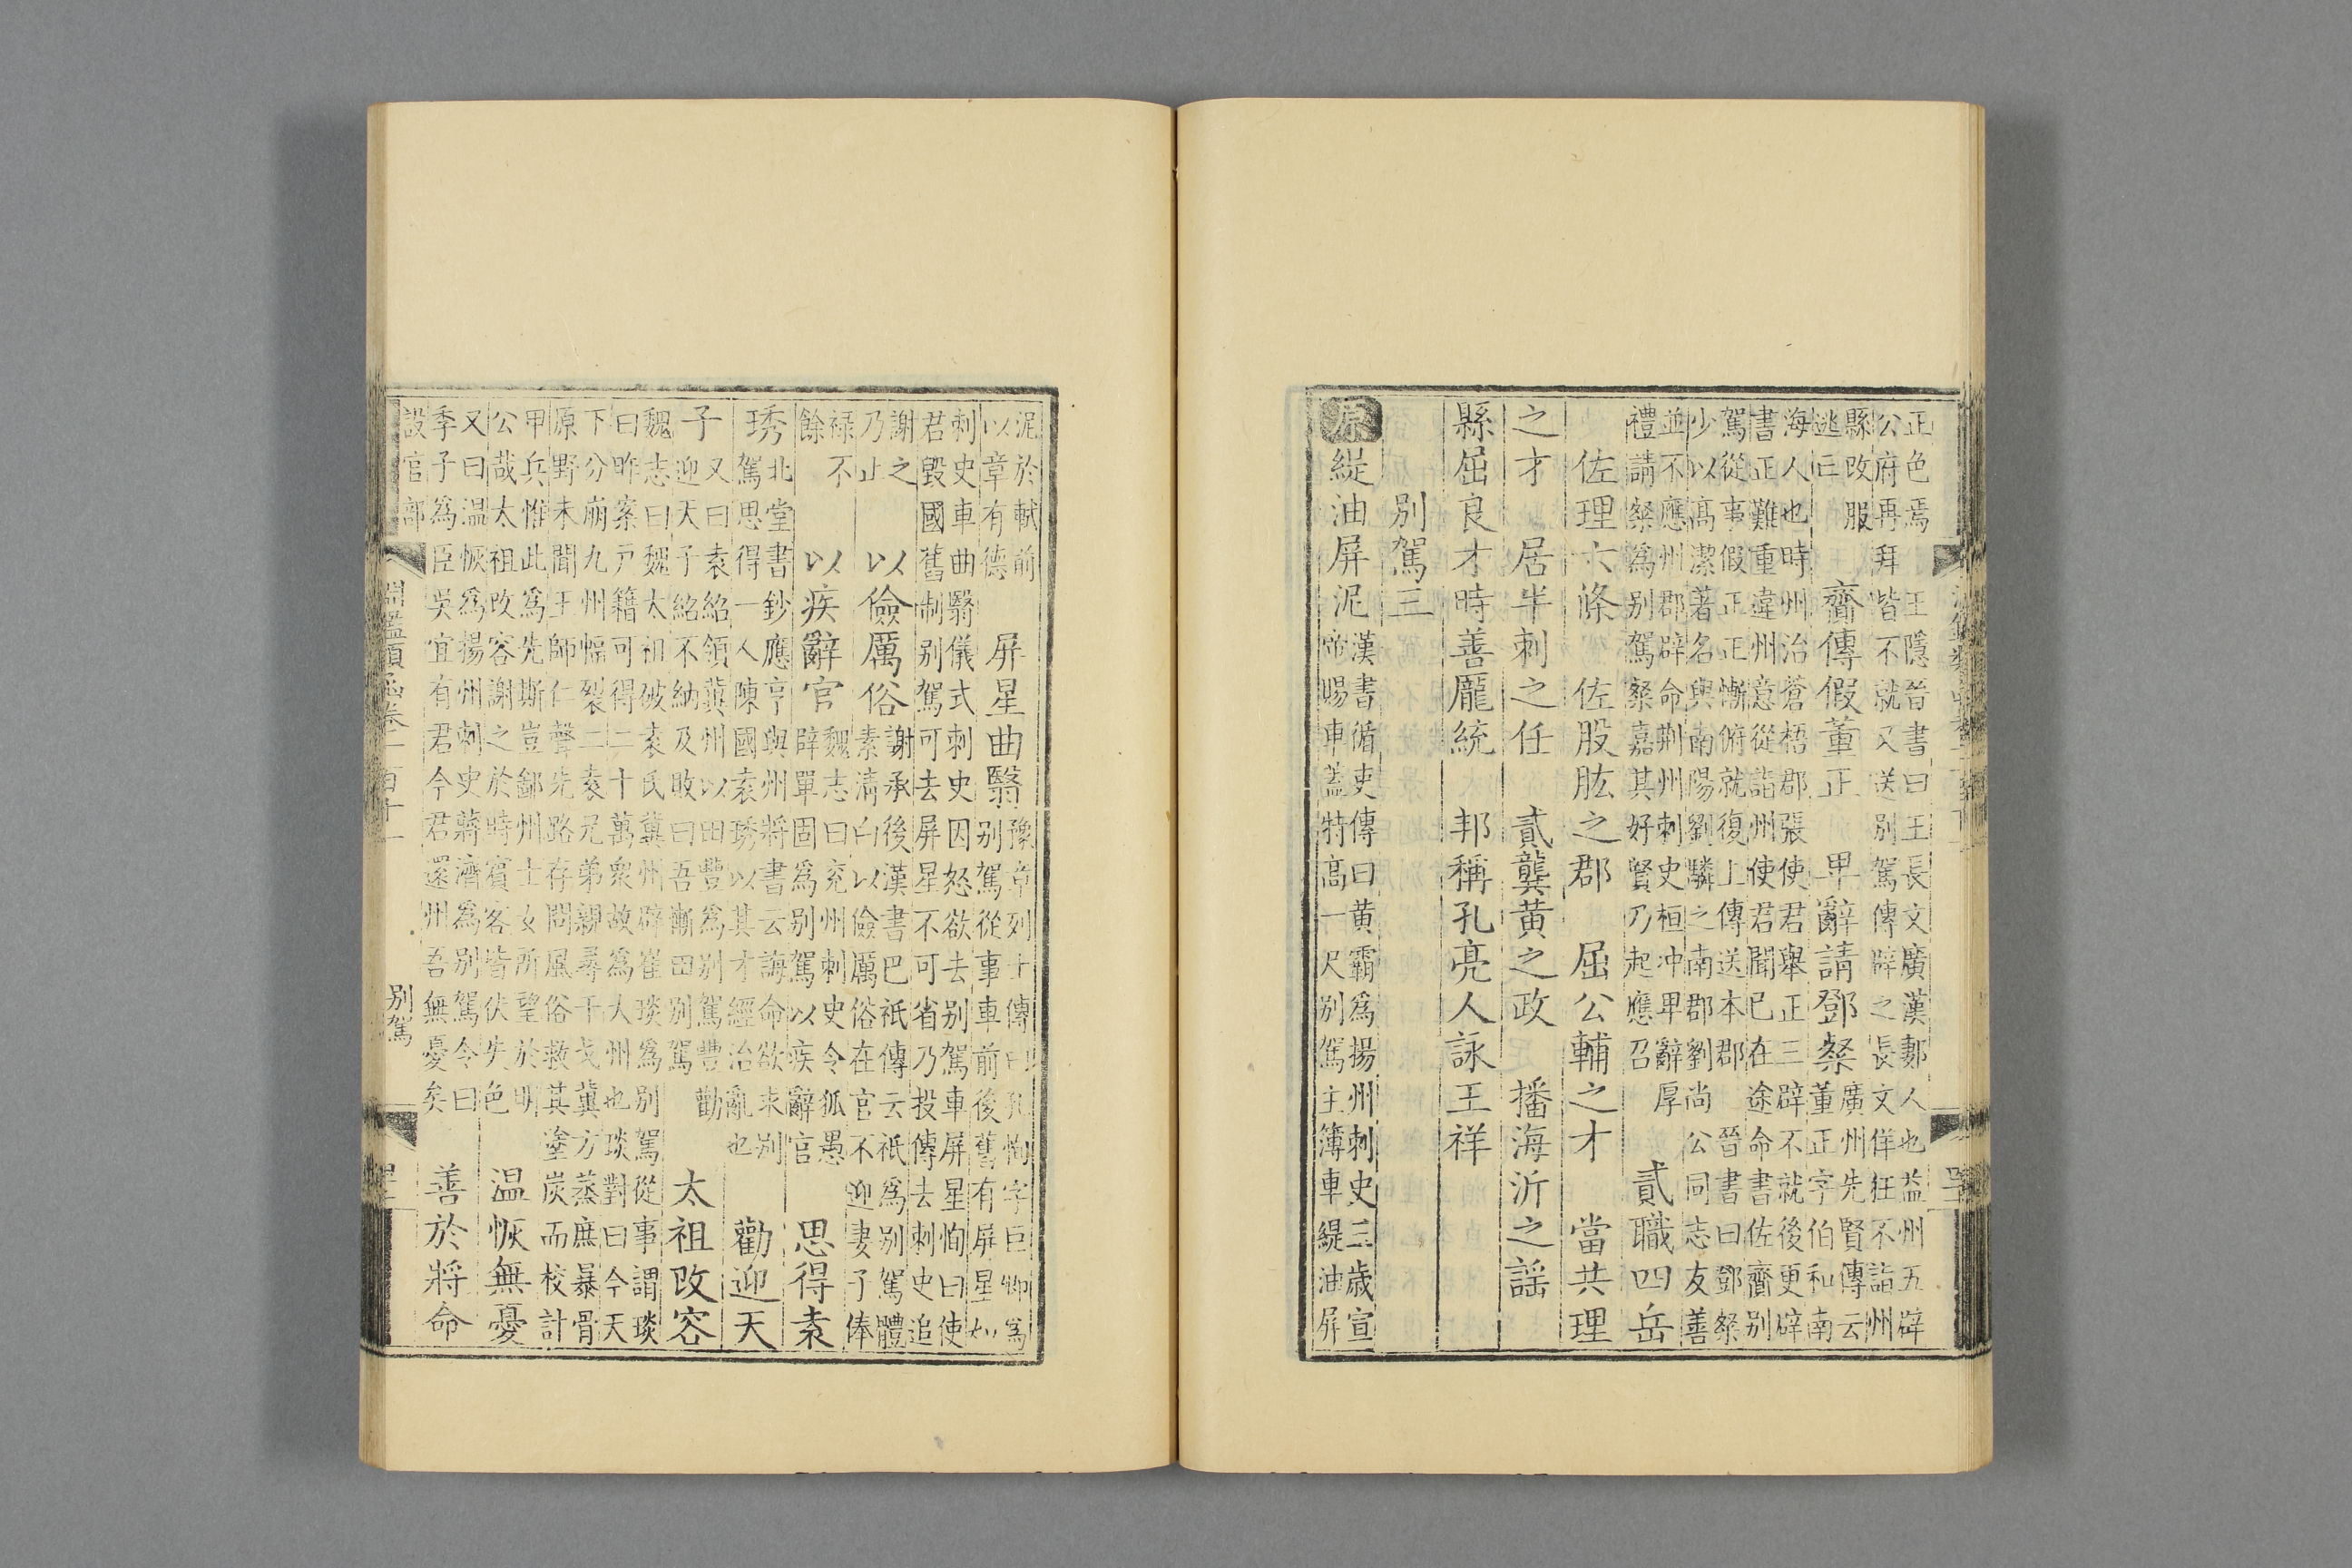 正色焉　王隱晉書曰王長文廣漢郪人也益州五辟
公府再拜皆不就又送別駕傳辟之長文佯狂不詣州
縣改服
逃亡
齎傳假董正　卑辭請鄧粲
廣州先賢傳云
董正字伯和南
海人也時州治蒼梧郡張使君舉正三辟不就後更辟
書正難重違州意從詣州使君聞已在途命書佐齎別
駕從事假正正慚俯就復上傳送本郡　晉書曰鄧粲
少以高潔著名與南陽劉驎之南郡劉尚公同志友善
並不應州郡辟命荆州刺史桓沖卑辭厚
禮請粲為別駕粲嘉其好賢乃起應召
貳職四岳
佐理六條　佐股肱之郡　屈公輔之才　當共理
之才　居半刺之任　貳龔黃之政　播海沂之謠
縣屈良才時善龐統　邦稱孔亮人詠王祥
別駕三
原緹油屏泥
漢書循吏傳曰黃霸為揚州刺史三歲宣
帝賜車蓋特高一尺別駕主簿車緹油屏
泥於軾前
以章有德
屏星曲翳
豫章列士傳曰孔恂字巨卿為
別駕從事車前後舊有屏星如
刺史車曲翳儀式刺史因怒欲去別駕車屏星恂曰使
君毀國舊制別駕可去屏星不可省乃投傳去刺史追
謝之
乃止
以儉厲俗
謝承後漢書巴祇傳云祇為別駕體
素清白以儉厲俗在官不迎妻子俸
祿不
餘
以疾辭官
魏志曰兗州刺史令狐愚
辟單固為別駕以疾辭官
思得袁
琇
北堂書鈔應亨與州將書云誨命欲求別
駕思得一人陳國袁琇以其才經治亂也
勸迎天
子
又曰袁紹領冀州以田豐為別駕豐勸
迎天子紹不納及敗曰吾慚田別駕
太祖改容
魏志曰魏太祖破袁氏冀州辟崔琰為別駕從事謂琰
曰昨案戸籍可得二十萬衆故為大州也琰對曰今天
下分崩九州幅裂二袁兄弟親尋干戈冀方蒸庶暴骨
原野未聞王師仁聲先路存問風俗救其塗炭而校計
甲兵惟此為先斯豈鄙州士女所望於明
公哉太祖改容謝之於時賓客皆伏失色
温恢無憂
又曰温恢為揚州刺史蔣濟為別駕令曰
季子為臣吳宜有君今君還州吾無憂矣
善於將命
設官部
淵鑑類函卷一百十一
別駕